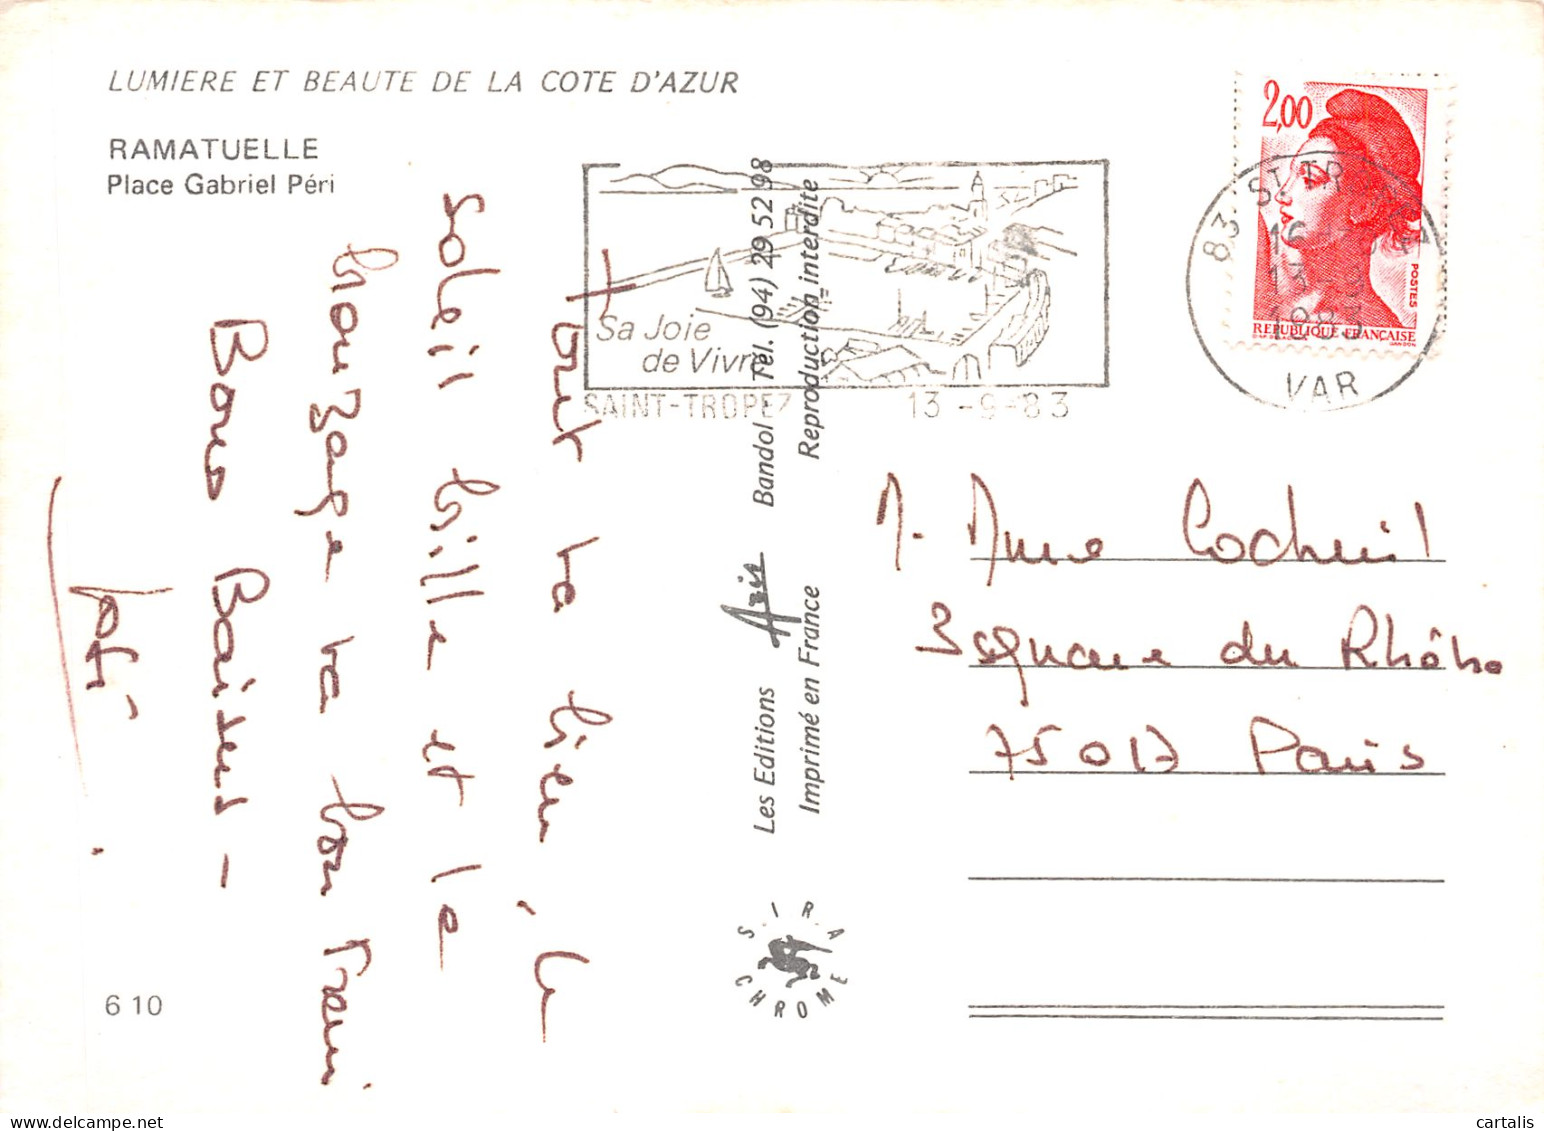 LUMIERE ET BEAUTE DE LA COTE D'AZUR
RAMATUELLE
Place Gabriel Péri
Tout va bien, le
soleil brille et le
bronzage va bon train
Bons Baisers -
6 10
Les Editions Azis Bandol Tél. (94) 29 52 98
Imprimé en France Reproduction interdite
S.I.R.A
CHROME
Sa Joie
de Vivre
SAINT-TROPEZ 13-9-83
83 ST TROPEZ
16
13
1983
VAR
2,00
POSTES
REPUBLIQUE FRANÇAISE
GANDON
M. Mme Cochuil
3 square du Rhône
75017 Paris
cartalis